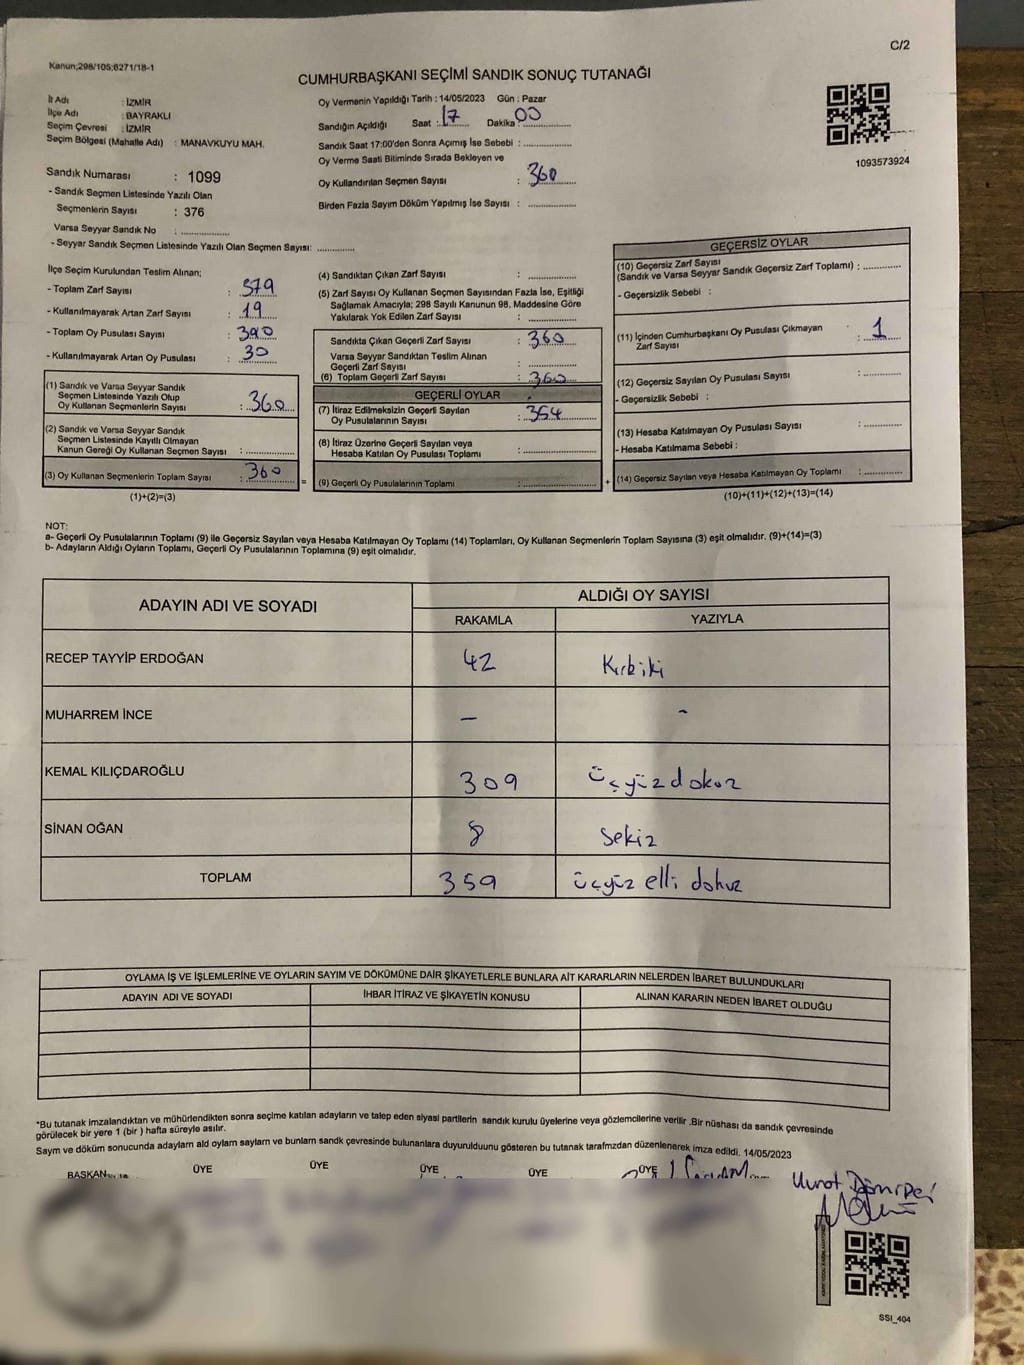 C/2
Kanun;298/105;6271/18-1
CUMHURBAŞKANI SEÇİMİ SANDIK SONUÇ TUTANAĞI
İl Adı : İZMİR
İlçe Adı : BAYRAKLI
Seçim Çevresi : İZMİR
Seçim Bölgesi (Mahalle Adı) : MANAVKUYU MAH.
Sandık Numarası : 1099
- Sandık Seçmen Listesinde Yazılı Olan
Seçmenlerin Sayısı : 376
Varsa Seyyar Sandık No :
- Seyyar Sandık Seçmen Listesinde Yazılı Olan Seçmen Sayısı:
Oy Vermenin Yapıldığı Tarih : 14/05/2023 Gün : Pazar
Sandığın Açıldığı Saat : 17 Dakika : 00
Sandık Saat 17:00'den Sonra Açımış İse Sebebi :
Oy Verme Saati Bitiminde Sırada Bekleyen ve
Oy Kullandırılan Seçmen Sayısı : 360
Birden Fazla Sayım Döküm Yapılmış İse Sayısı :
1093573924
İlçe Seçim Kurulundan Teslim Alınan;
- Toplam Zarf Sayısı : 379
- Kullanılmayarak Artan Zarf Sayısı : 19
- Toplam Oy Pusulası Sayısı : 390
- Kullanılmayarak Artan Oy Pusulası : 30
(1) Sandık ve Varsa Seyyar Sandık
Seçmen Listesinde Yazılı Olup
Oy Kullanan Seçmenlerin Sayısı : 360
(2) Sandık ve Varsa Seyyar Sandık
Seçmen Listesinde Kayıtlı Olmayan
Kanun Gereği Oy Kullanan Seçmen Sayısı :
(3) Oy Kullanan Seçmenlerin Toplam Sayısı : 360
(1)+(2)=(3)
=
(4) Sandıktan Çıkan Zarf Sayısı :
(5) Zarf Sayısı Oy Kullanan Seçmen Sayısından Fazla İse, Eşitliği
Sağlamak Amacıyla; 298 Sayılı Kanunun 98. Maddesine Göre
Yakılarak Yok Edilen Zarf Sayısı :
Sandıkta Çıkan Geçerli Zarf Sayısı : 360
Varsa Seyyar Sandıktan Teslim Alınan
Geçerli Zarf Sayısı :
(6) Toplam Geçerli Zarf Sayısı : 360
GEÇERLİ OYLAR
(7) İtiraz Edilmeksizin Geçerli Sayılan
Oy Pusulasının Sayısı : 354
(8) İtiraz Üzerine Geçerli Sayılan veya
Hesaba Katılan Oy Pusulası Toplamı :
(9) Geçerli Oy Pusulalarının Toplamı :
+
GEÇERSİZ OYLAR
(10) Geçersiz Zarf Sayısı
(Sandık ve Varsa Seyyar Sandık Geçersiz Zarf Toplamı) :
- Geçersizlik Sebebi :
(11) İçinden Cumhurbaşkanı Oy Pusulası Çıkmayan
Zarf Sayısı : 1
(12) Geçersiz Sayılan Oy Pusulası Sayısı :
- Geçersizlik Sebebi :
(13) Hesaba Katılmayan Oy Pusulası Sayısı :
- Hesaba Katılmama Sebebi :
(14) Geçersiz Sayılan veya Hesaba Katılmayan Oy Toplamı :
(10)+(11)+(12)+(13)=(14)
NOT:
a- Geçerli Oy Pusulalarının Toplamı (9) ile Geçersiz Sayılan veya Hesaba Katılmayan Oy Toplamı (14) Toplamları, Oy Kullanan Seçmenlerin Toplam Sayısına (3) eşit olmalıdır. (9)+(14)=(3)
b- Adayların Aldığı Oyların Toplamı, Geçerli Oy Pusulalarının Toplamına (9) eşit olmalıdır.
ADAYIN ADI VE SOYADI
ALDIĞI OY SAYISI
RAKAMLA YAZIYLA
RECEP TAYYİP ERDOĞAN 42 Kırkiki
MUHARREM İNCE - -
KEMAL KILIÇDAROĞLU 309 üçyüzdokuz
SİNAN OĞAN 8 Sekiz
TOPLAM 359 üçyüz elli dokuz
OYLAMA İŞ VE İŞLEMLERİNE VE OYLARIN SAYIM VE DÖKÜMÜNE DAİR ŞİKAYETLERLE BUNLARA AİT KARARLARIN NELERDEN İBARET BULUNDUKLARI
ADAYIN ADI VE SOYADI İHBAR İTİRAZ VE ŞİKAYETİN KONUSU ALINAN KARARIN NEDEN İBARET OLDUĞU
"Bu tutanak imzalandıktan ve mühürlendikten sonra seçime katılan adayların ve talep eden siyasi partilerin sandık kurulu üyelerine veya gözlemcilerine verilir .Bir nüshası da sandık çevresinde
görülecek bir yere 1 (bir ) hafta süreyle asılır.
Saym ve döküm sonucunda adaylarm ald oylarm saylarm ve bunlarm sandk çevresinde bulunanlara duyurulduunu gösteren bu tutanak tarafmzdan düzenlenerek imza edildi. 14/05/2023
BAŞKAN ÜYE ÜYE ÜYE ÜYE ÜYE
SSI_404